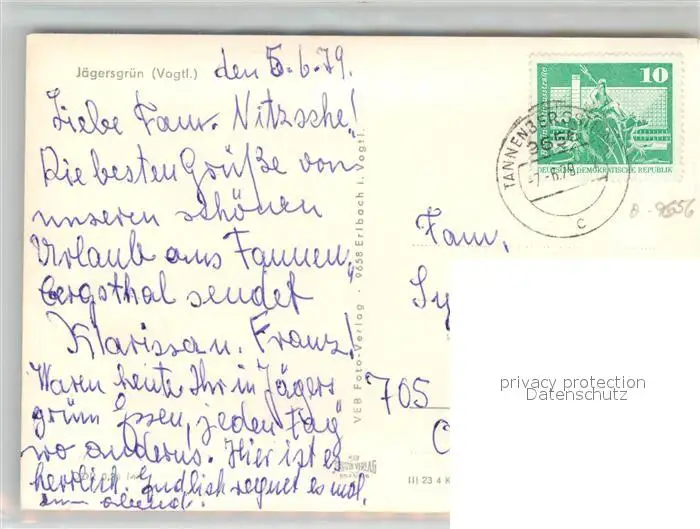 Jägersgrün (Vogtl.)
den 5.6.79.
Liebe Fam. Nitzsche!
Die besten Grüße von
unseren schönen
Urlaub aus Tannen„
bergsthal sendet
Klarissa u. Franz!
Waren heute Ihr in Jägers
grün Essen, jeden Tag
wo anderns. Hier ist es
herrlich. Endlich regnet es mal.
zum abend.
VEB Foto-Verlag · 9658 Erlbach i. Vogtl.
III 23 4 K
10
DEUTSCHE DEMOKRATISCHE REPUBLIK
TANNENBERGSTHAL
9656
-7.-6.79
c
9656
Fam.
705
privacy protection
Datenschutz